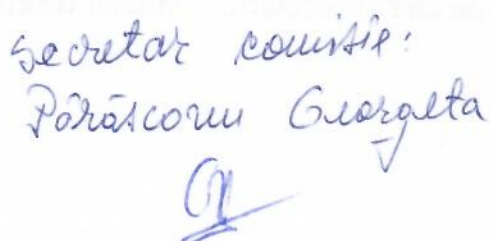 Secretar comisie:
Părăscoveu Georgeta